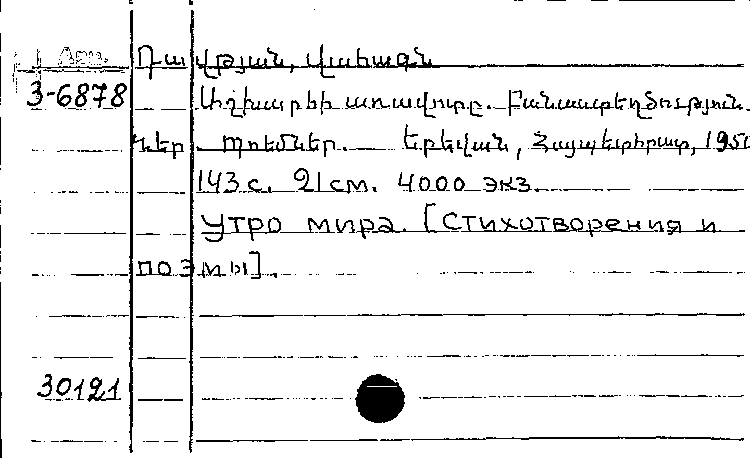 Арм. Դավթյան, Վահագն
3-6878 Աշխարհի առավոտը. Բանաստեղծություն-
ներ. Պոեմներ. Երեվան, Հայպետհրատ, 1950
143 с. 21 см. 4000 экз.
Утро мира. [Стихотворения и
поэмы].
30121